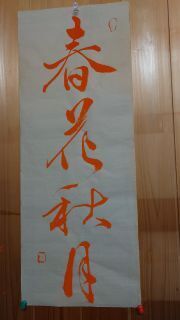 春花秋月